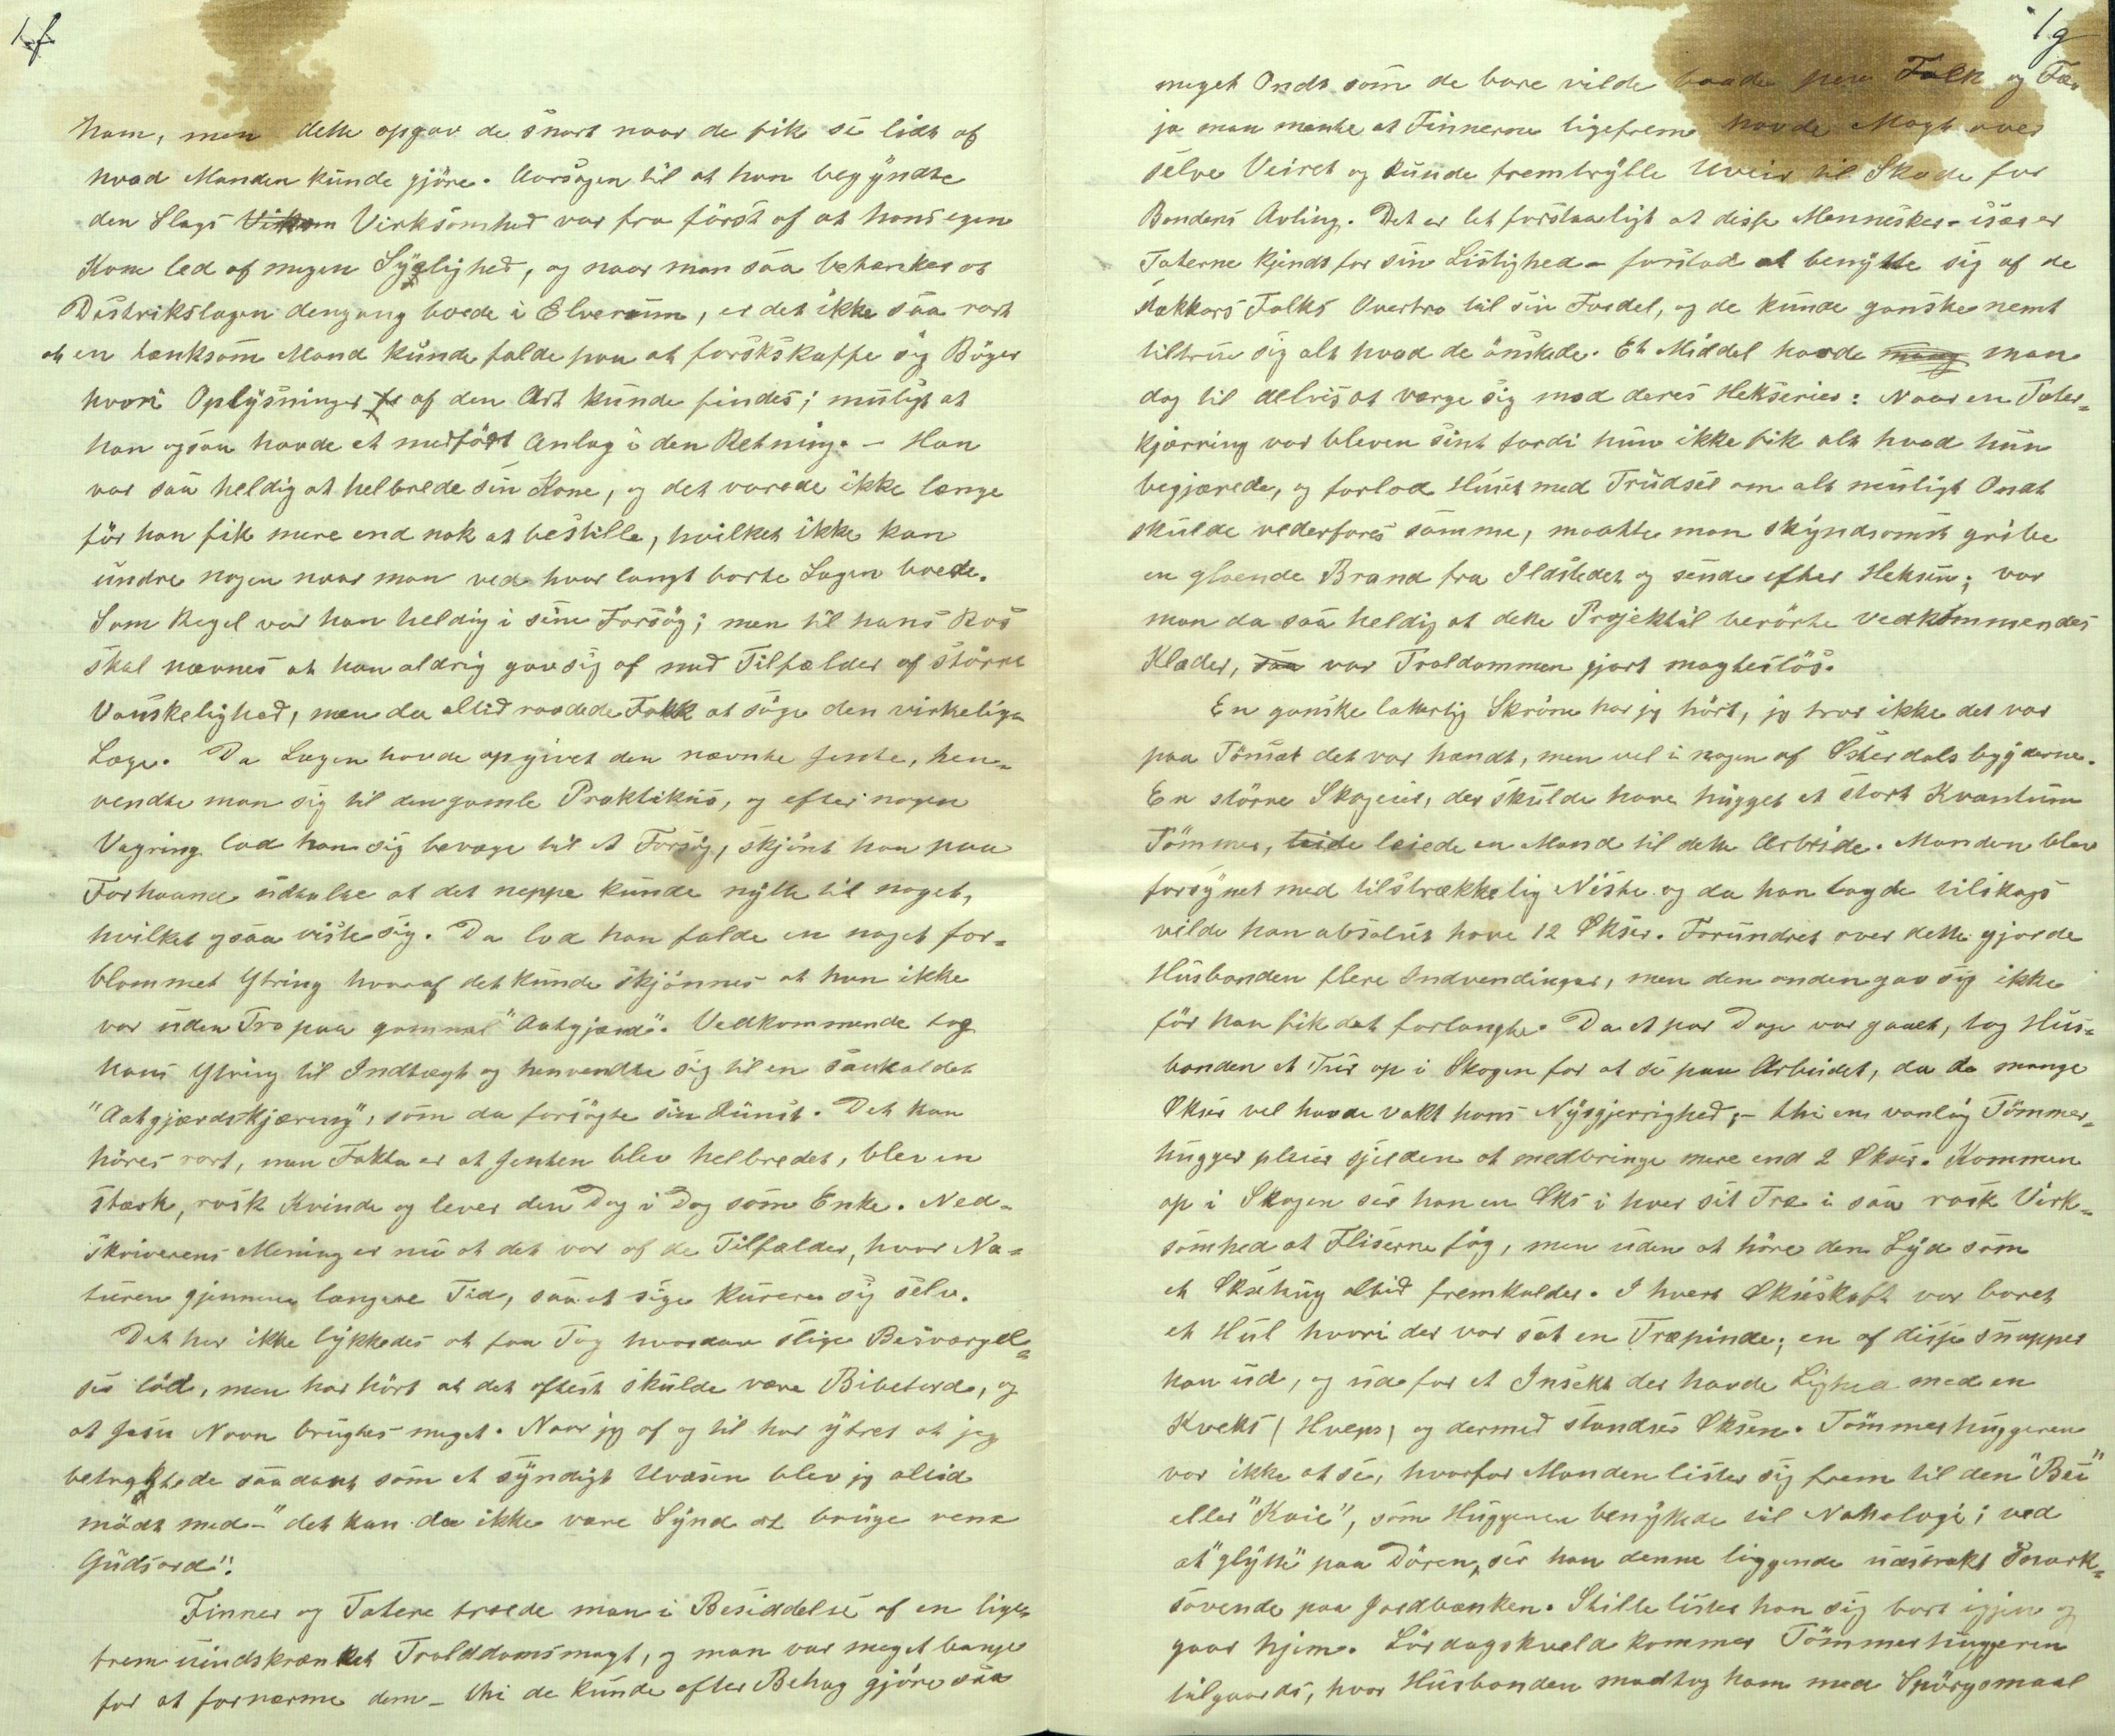 1f
ham, men dette opgav de snart naar de fik se lidt af
hvad Manden kunde gjøre. Aarsagen til at han begyndte
den Slags Virksomhed var fra först af at hans egen
Kone led af megen Sygelighed, og naar man saa betænker at
Distriktslægen dengang boede i Elverum, er det ikke saa rart
at en tænksom Mand kunde falde paa at forskskaffe sig Böger
hvori Oplysninger af den Art kunde findes; muligt at
han ogsaa havde et medfödt Anlag i den Retning. – Han
var saa heldig at helbrede sin Kone, og det varede ikke længe
för han fik mere end nok at bestille, hvilket ikke kan
undre nogen naar man ved hvor langt borte Lægen boede.
Som Regel var han heldig i sine Forsög; men til hans Ros
skal nævnes at han aldrig gav sig af med Tilfælder af större
Vanskelighed, men da altid raadede Folk at söge den virkelige
Læge. Da Lægen havde opgivet den nævnte Jente, hen-
vendte man sig til den gamle Praktikus, og efter nogen
Vægring lod han sig bevæge til et Forsög, skjönt han paa
Forhaand udtalte at det neppe kunde nytte til noget,
hvilket ogsaa viste sig. Da lod han falde en noget for-
blommet Ytring hvoraf det kunde skjönnes at han ikke
var uden Tro paa gammel "Aatgjærd". Vedkommende tog
hans Ytring til Indtægt og henvendte sig til en saakaldet
"Aatgjærdskjæring", som da forsögte sin Kunst. Det kan
höres rart, men Fakta er at Jenten blev helbredet, blev en
stærk, rask Kvinde og lever den Dag i Dag som Enke. Ned-
skriverens Mening er nu at det var af de Tilfælder, hvor Na-
turen gjennem længere Tid, saa at sige kurerer sig selv.
Det har ikke lykkedes at faa Tag hvordan slige Besværgel-
ser löd, men har hört at det oftest skulde være Bibelord, og
at Jesu Navn brugtes meget. Naar jeg af og til har ytret at jeg
betragtede saadant som et syndigt Uvæsen blev jeg altid
mödt med – "det kan da ikke være Synd at bruge rene
Gudsord".
Finner og Tatere troede man i Besiddelse af en lige-
frem uindskrænket Trolddomsmagt, og man var meget bange
for at fornærme dem – thi de kunde efter Behag gjöre saa
1g
meget Ondt som de bare vilde baade paa Folk og Fæ,
ja man mente at Finnerne ligefrem havde Magt over
selve Veiret og kunde fremtrylle Uveir til Skade for
Bondens Avling. Det er let forstaaeligt at disse Mennesker – især er
Taterne kjendt for sin Listighed – forstod at benytte sig af de
stakkars Folks Overtro til sin Fordel, og de kunde ganske nemt
tiltrue sig alt hvad de önskede. Et Middel havde mang man
dog til delvis at værge sig mod deres Hekserier: Naar en Tater-
kjærring var bleven sint fordi hun ikke fik alt hvad hun
begjærede, og forlod Huset med Trudsel om alt muligt Ondt
skulde vederfares samme, maatte man skyndsomst gribe
en gloende Brand fra Ildstedet og sende efter Heksen; var
man da saa heldig at dette Projektil berörte Vedkommendes
Klæder, saa var Troldommen gjort magteslös.
En ganske latterlig Skröne har jeg hört, jeg tror ikke det var
paa Tönset det var hændt, men vel i nogen af Österdalsbygderne.
En större Skogeier, der skulde have hugget et stort Kvantum
Tömmer, leide leiede en Mand til dette Arbeide. Manden blev
forsynet med tilstrækkelig Niste og da han lagde tilskogs
vilde han absolut have 12 Økser. Forundret over dette gjorde
Husbonden flere Indvendinger, men den anden gav sig ikke
för han fik det forlangte. Da et par Dage var gaaet, tog Hus-
bonden et Tur op i Skogen for at se paa Arbeidet, da de mange
Økser vel havde vakt hans Nysgjerrighed, – thi en vanlig Tömmer-
hugger pleier sjelden at medbringe mere end 2 Økser. Kommen
op i Skogen ser han en Øks i hver sit Træ i saa rask Virk-
somhed at Fliserne fög, men uden at höre den Lyd som
et Øksehug altid fremkalder. I hvert Økseskaft var boret
et Hul hvori der var sat en Træpinde; en af disse snapper
han ud, og ud för et Insekt der havde Lighed med en
Kveks (Hveps) og dermed standser Øksen. Tömmerhuggeren
var ikke at se, hvorfor Manden lister sig frem til den "Bu"
eller "Koie", som Huggeren benyttede til Natteloge; ved
at "glytte" paa Dören, ser han denne liggende udstrakt Snork-
sovende paa Jordbænken. Stille lister han sig bort igjen og
gaar hjem. Lördagskveld kommer Tömmerhuggeren
tilgaards, hvor Husbonden modtog ham med Spörgsmaal